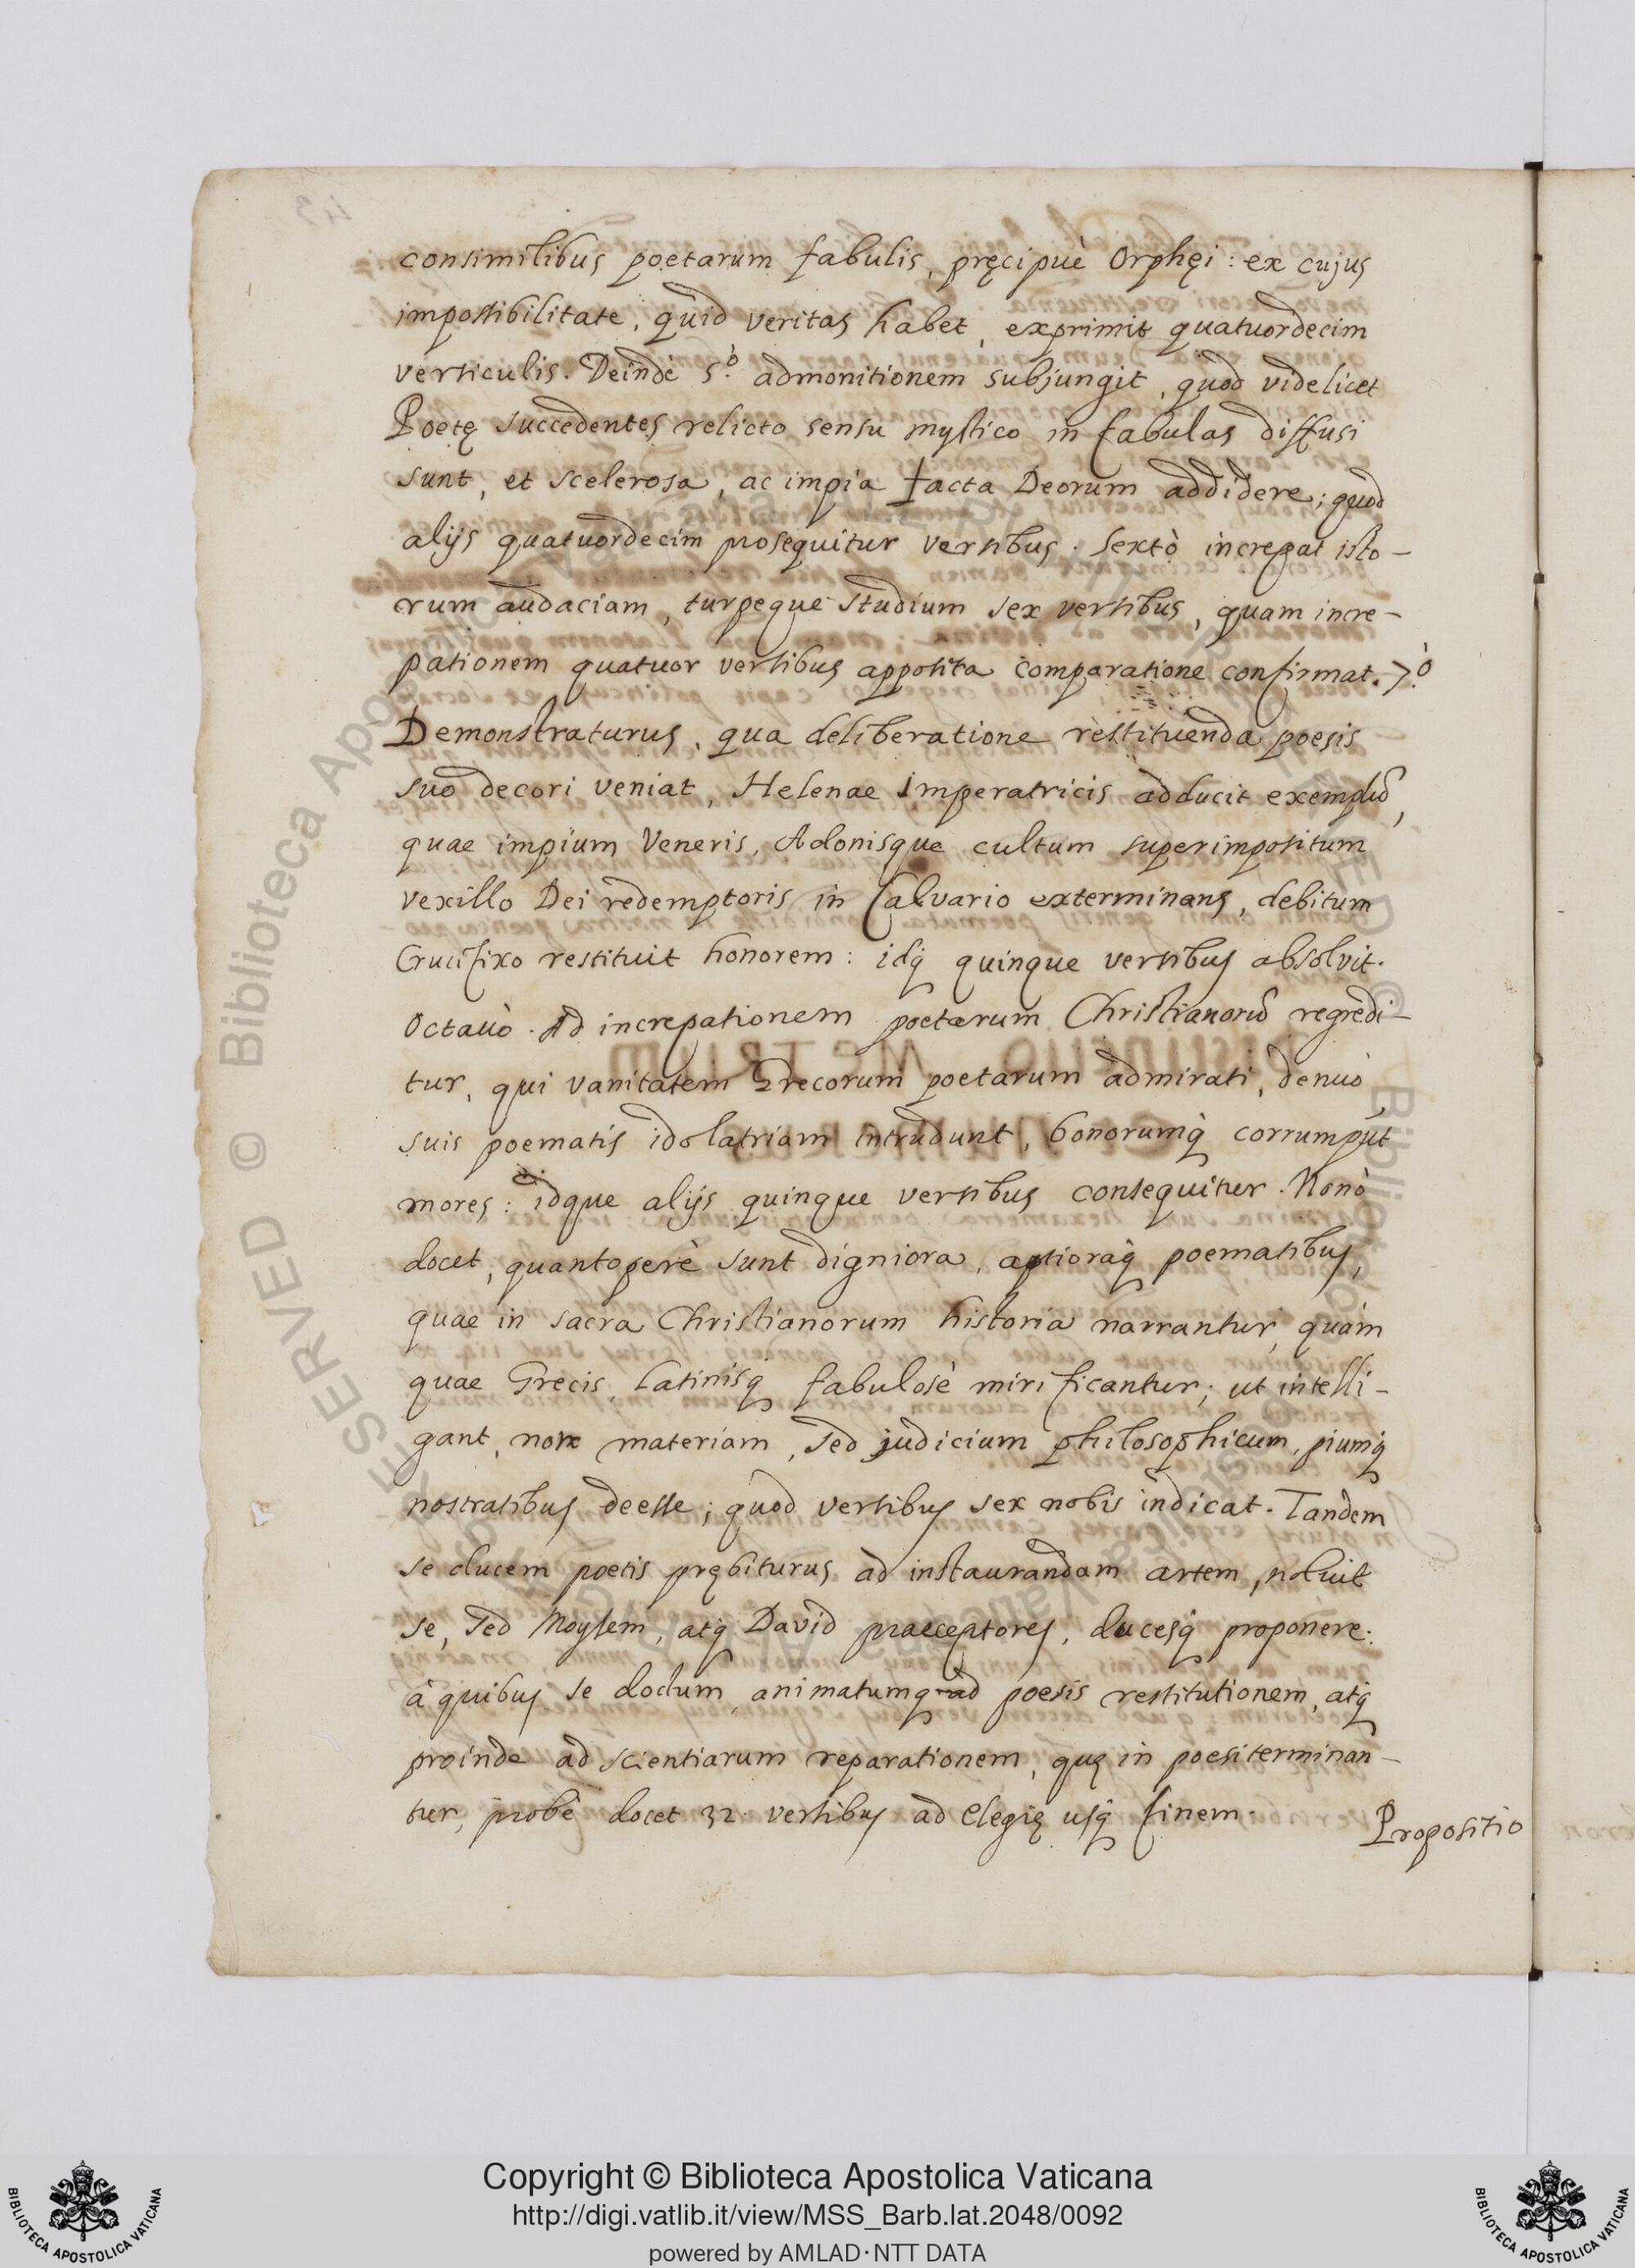 consimilibus poetarum fabulis, pręcipuè Orphęi: ex cujus
impossibilitate, quid veritas habet, exprimit quatuordecim
versiculis. Deinde 5.ò admonitionem subjungit, quod videlicet
Poetę succedentes relicto sensu mystico in fabulas diffusi
sunt, et scelerosa, ac impia facta Deorum addidere; quod
alijs quatuordecim prosequitur versibus. Sextò increpat isto-
rum audaciam, turpeque studium sex versibus, quam incre-
pationem quatuor versibus apposita comparatione confirmat. 7.ò
Demonstraturus, qua deliberatione restituenda poesis
suo decori veniat, Helenae Imperatricis adducit exemplũ,
quae impium Veneris, Adonisque cultum superimpositum
vexillo Dei redemptoris in Calvario exterminans, debitum
Crucifixo restituit honorem: idq́ quinque versibus absolvit.
Octauò. Ad increpationem poetarum Christianorũ regredi-
tur, qui vanitatem Grecorum poetarum admirati, denuò
suis poematis idolatriam intrudunt, bonorumq́ corrumpũt
mores: idque alijs quinque versibus consequitur. Nonò
docet, quantoperè sunt digniora, aptioraq́ poematibus,
quae in sacra Christianorum historia narrantur, quàm
quae Grecis, Latinisq́ fabulosè mirificantur; ut intelli-
gant, non materiam, sed judicium philosophicum, piumq́
nostratibus deesse; quod versibus sex nobis indicat. Tandem
se ducem poetis prębiturus ad instaurandam artem, noluit
se, sed Moysem, atq́ David praeceptores, ducesq́ proponere:
à quibus se doctum, animatumq́ ad poesis restitutionem, atq́
proinde ad scientiarum reparationem, quę in poesi terminan-
tur, probè docet 32. versibus ad Elegię usq́ finem.
Propositio
Copyright © Biblioteca Apostolica Vaticana
http://digi.vatlib.it/view/MSS_Barb.lat.2048/0092
powered by AMLAD·NTT DATA
BIBLIOTECA APOSTOLICA VATICANA
BIBLIOTECA APOSTOLICA VATICANA